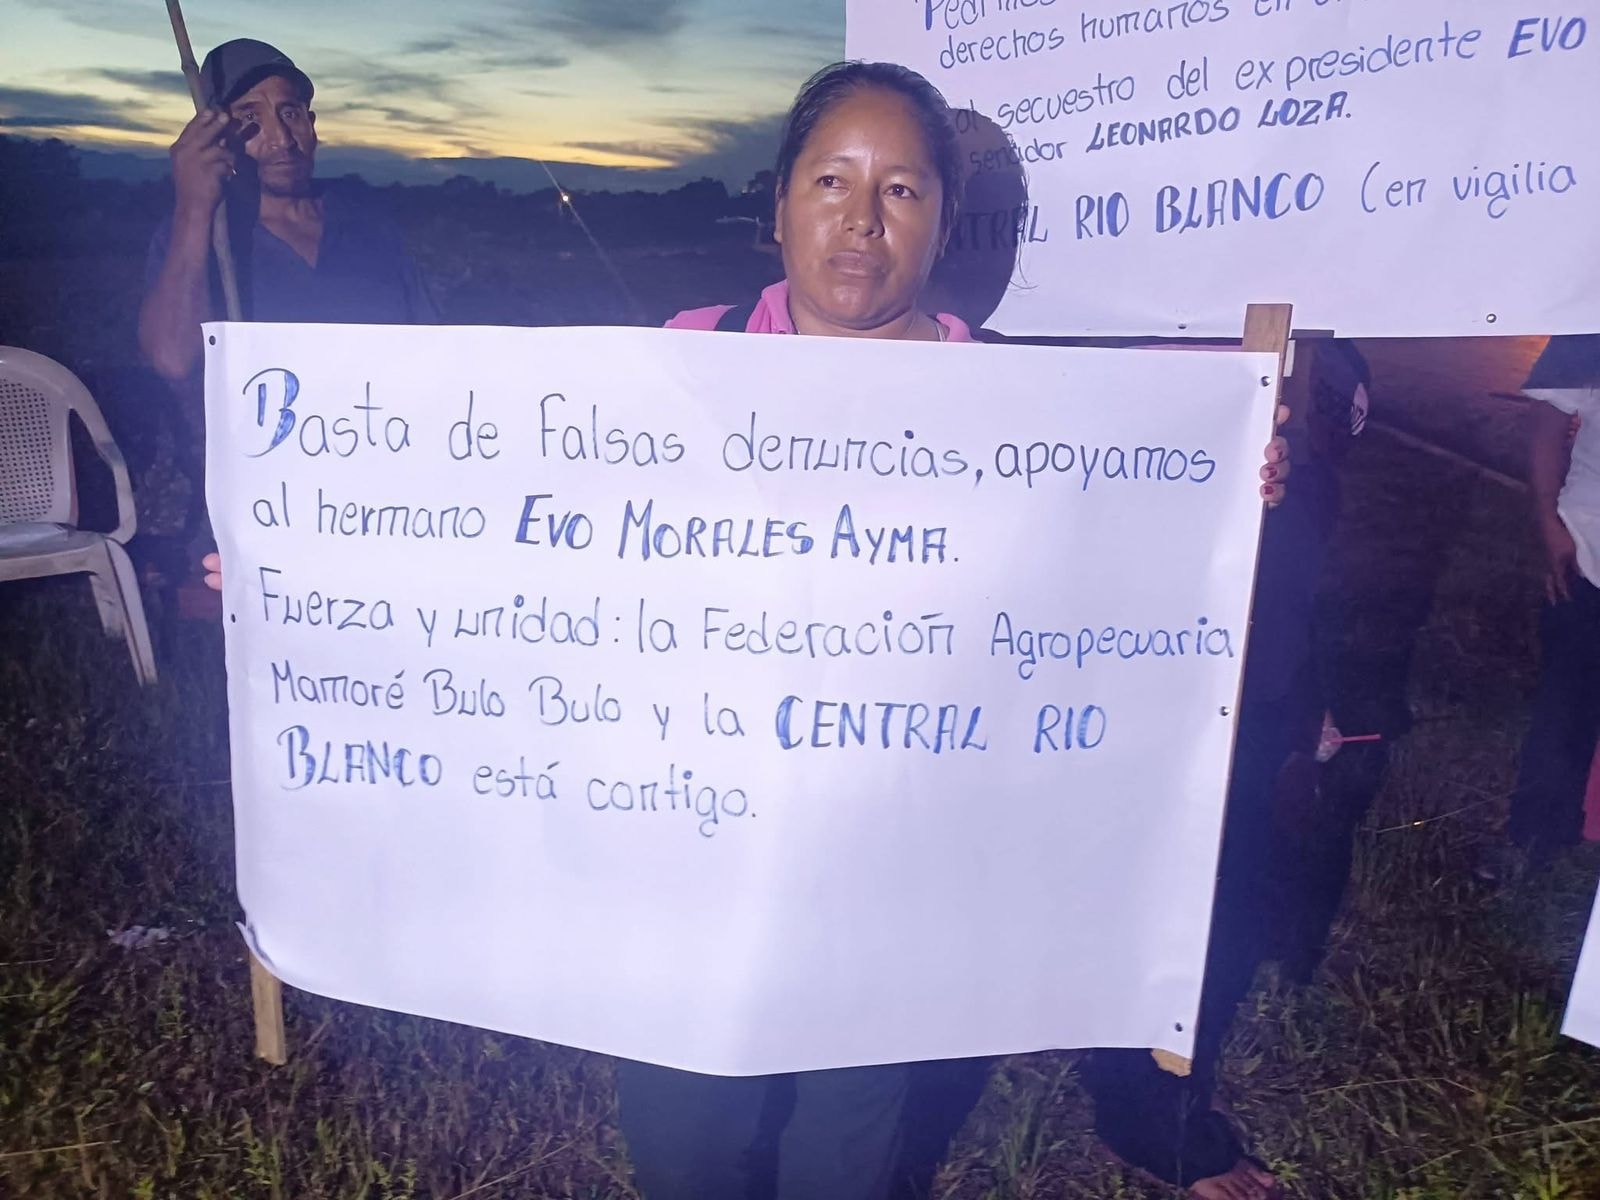 derechos humanos en
al secuestro del expresidente EVO
senador LEONARDO LOZA.
CENTRAL RIO BLANCO (en vigilia
Basta de Falsas denuncias, apoyamos
al hermano EVO MORALES AYMA.
. Fuerza y unidad: la Federación Agropecuaria
Mamoré Bulo Bulo y la CENTRAL RIO
BLANCO está contigo.